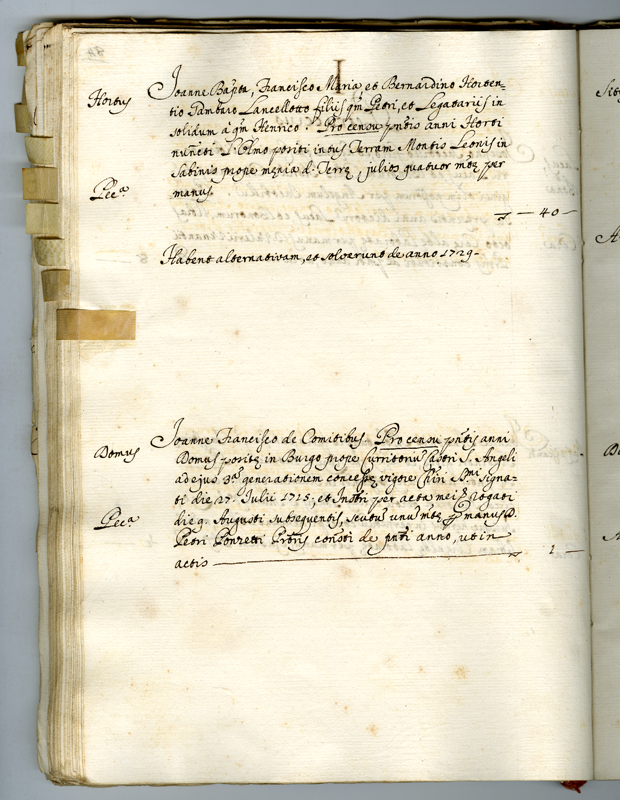 I
Hortus
Joanne Bapta, Francisco Maria, et Bernardino Horten=
tio Tamburo Lancellotto filiis qm Petri, et Legatariis in
solidum a qm Henrico. Pro censu pntis anni Horti
nuncti L'Olmo positi intus Terram Montis Leonis in
Sabinis prope menia d. Terrę, julios quatuor mtę per
Pec.a
manus
40
Habent alternativam, et solverunt de anno 1729
Domus
Joanne Francisco de Comitibus. Pro censu pntis anni
Domus positę in Burgo prope Curritoriu Castri S. Angeli
ad ejus 3.am generationem concessę vigore Chiri SSmi signa=
ti die 27. Julii 1715, et Instri per acta mei rogati
Pec.a
die 9. Augusti subsequentis, scutu unu mtę p manus D.
Petri Ponzetti consti de pnti anno, ut in
actis
1